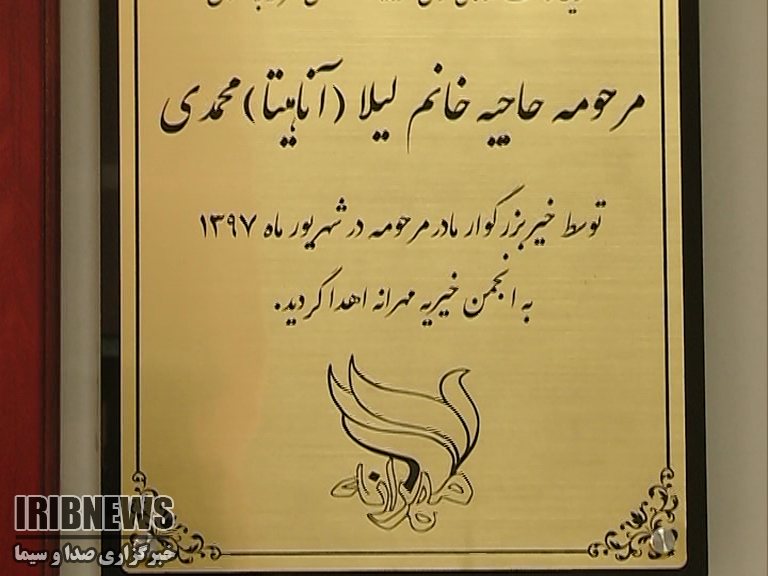 مرحومه حاجیه خانم لیلا (آناهیتا) محمدی
توسط خیر بزرگوار مادر مرحومه در شهریور ماه ۱۳۹۷
به انجمن خیریه مهرانه اهدا گردید.
مهرانه
IRIBNEWS
خبرگزاری صدا و سیما